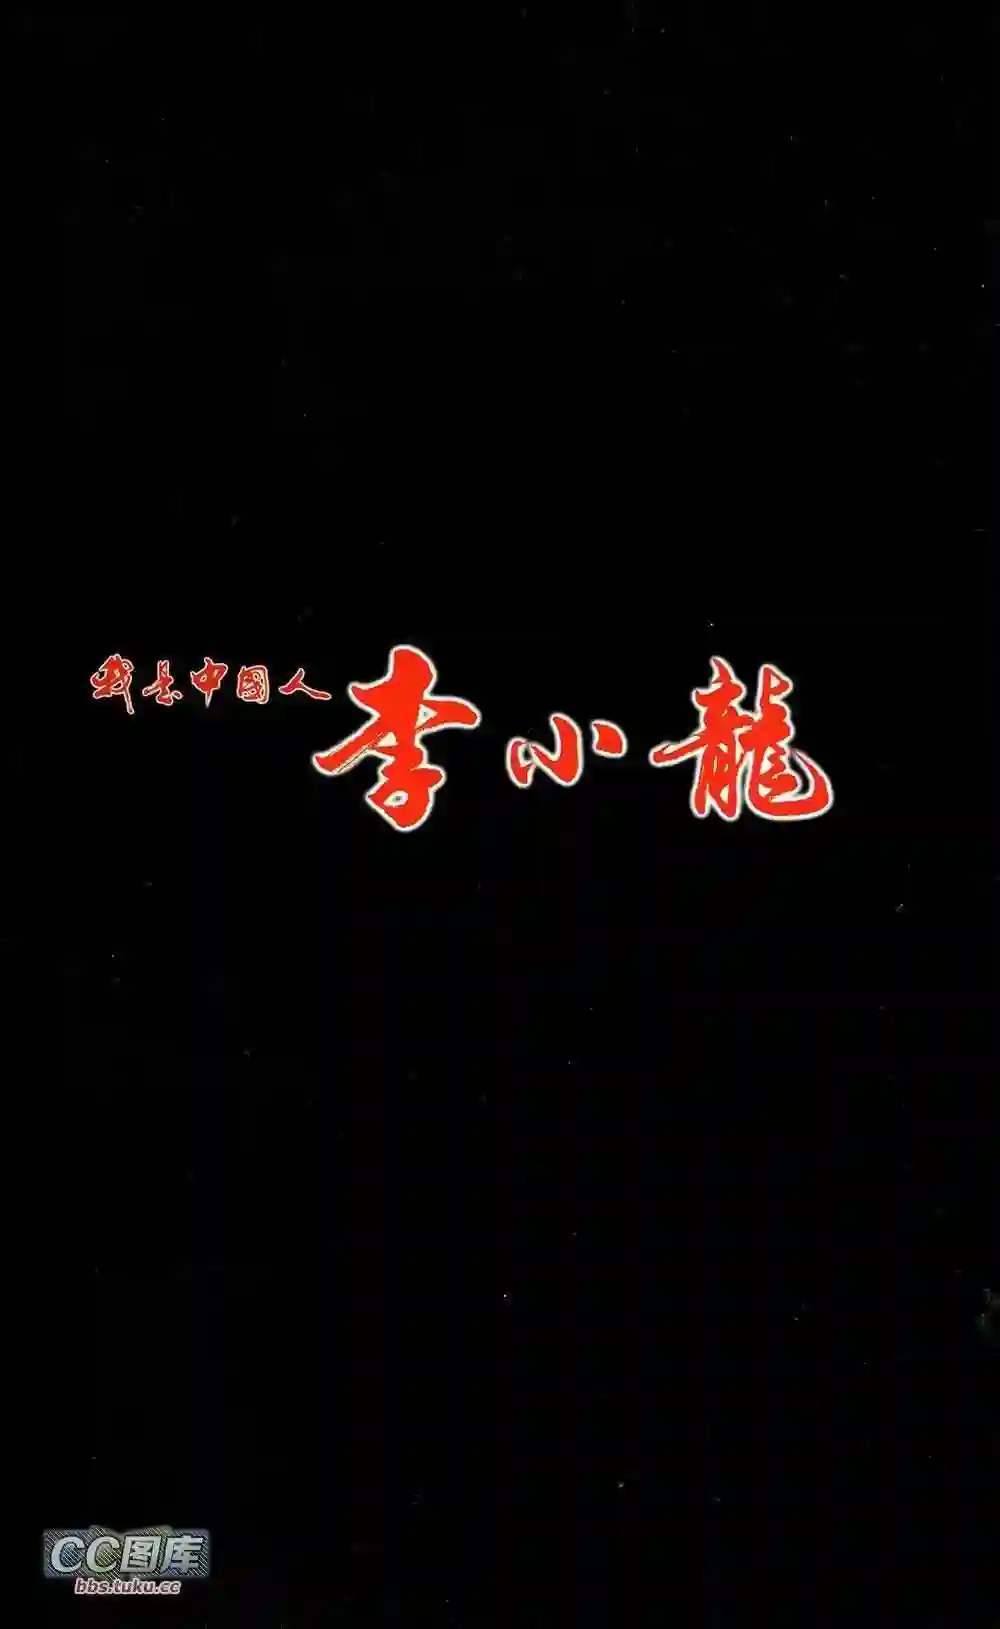 我是中國人
李小龍
CC图库
bbs.tuku.cc